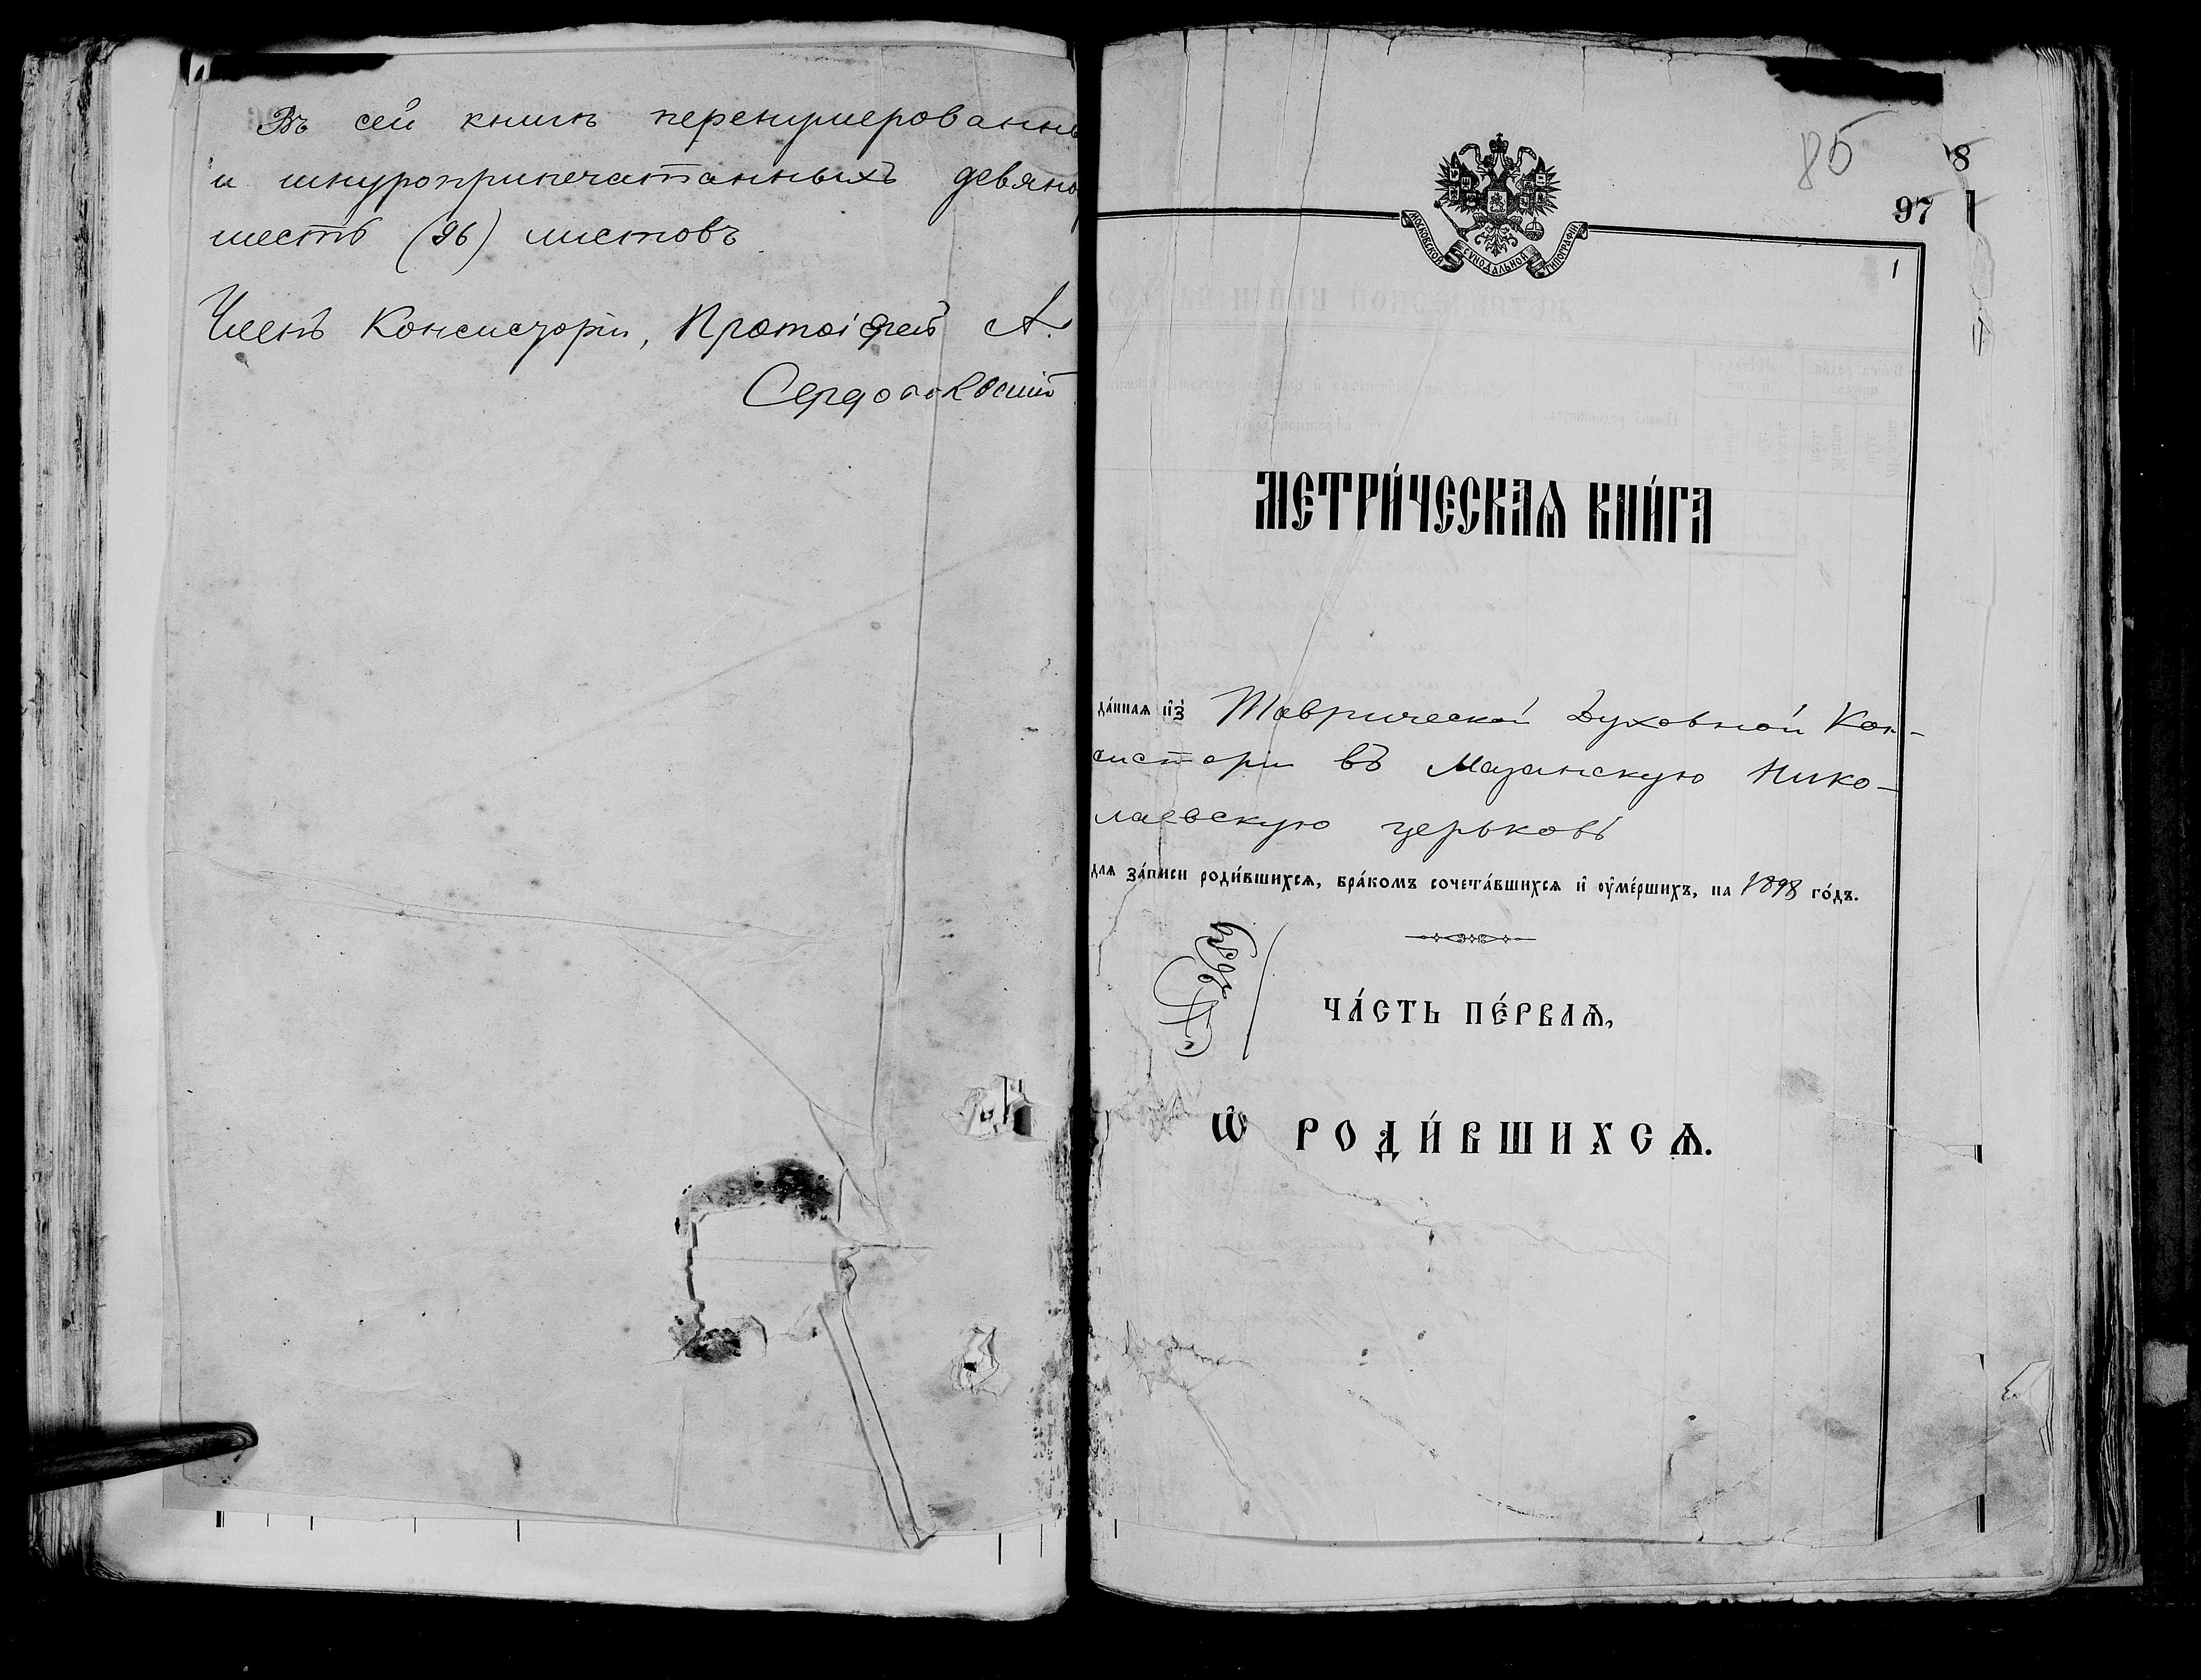 Въ сей книгѣ перенумерованн
и шнуроприпечатанныхъ девяно
шесть (96) листовъ
Членъ Консисторіи, Протоіерей А.
85
8
97
1
МОСКОВСКОЙ СѴНОДАЛЬНОЙ ТИПОГРАФІИ
МЕТРИ́ЧЕСКАѦ КНИ́ГА
да́ннаѧ и҆зъ Таврической Духовной Кон-
систоріи въ Мазанскую Нико-
лаевскую церковь
для за́писи роди́вшихсѧ, бра́комъ сочета́вшихсѧ и҆ оу҆ме́ршихъ, на 1898 го́дъ.
ЧА́СТЬ ПЕ́РВАѦ,
Ѡ҆ РОДИ́ВШИХСѦ.